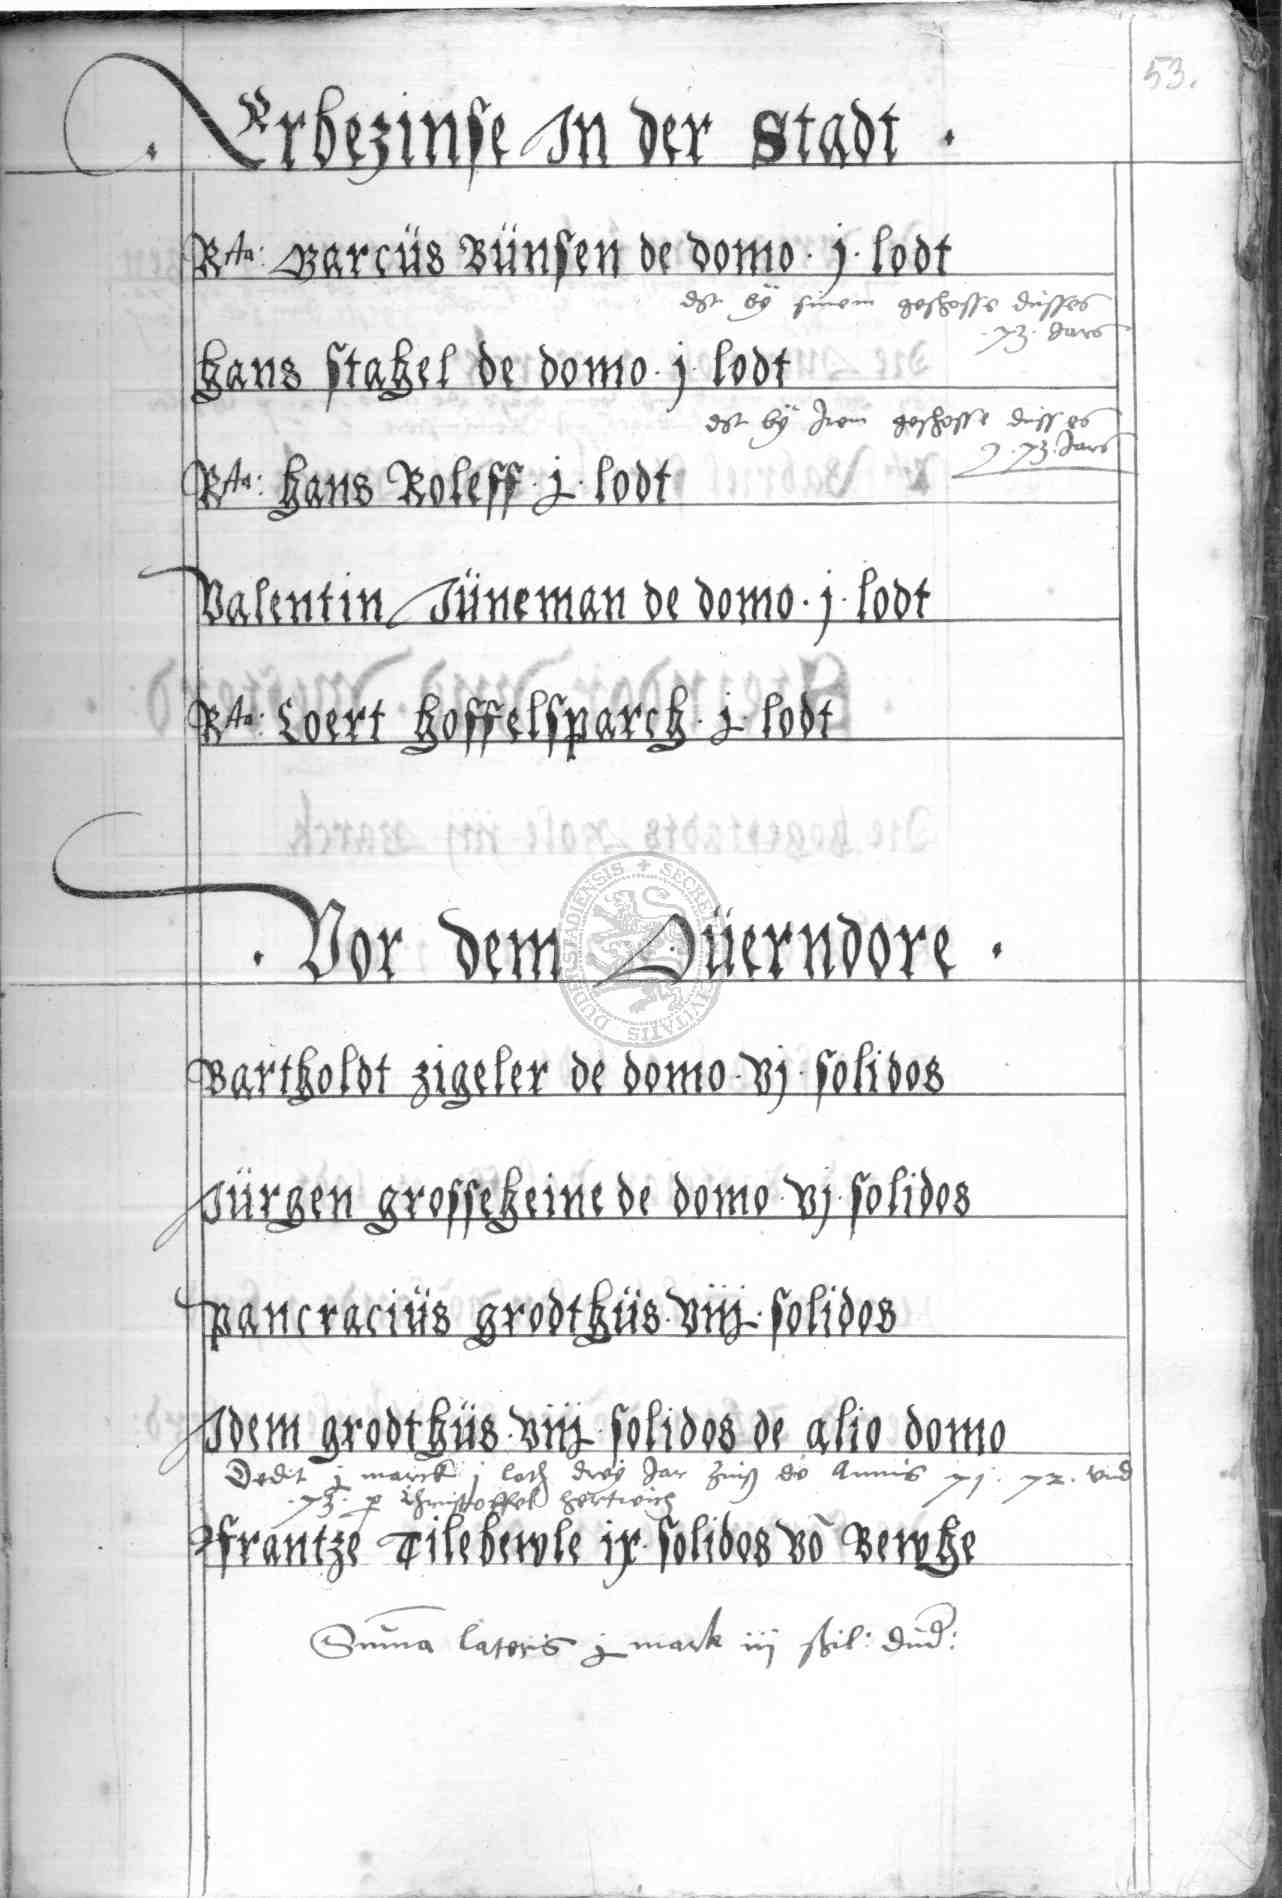 53.
· Erbezinse In der Stadt ·
Rta: Marcüs Bünsen de domo · j · lodt
dst by sinem geschosse düsses
· 73 · Jars
Hans stahel de domo · j · lodt
dst by Irem geschosse düsses
73 · Jars
Rta: Hans Roleff · j · lodt
Valentin Jüneman de domo · j · lodt
Rta: Coert Hoffelsparch · j · lodt
· Vor dem Oüerndore ·
Bartholdt zigeler de domo · vj · solidos
Jürgen grosseheine de domo · vj · solidos
Pancraciüs grodthüs · viij · solidos
Idem grodthüs · viij · solidos de alio domo
Dedit j marck j loth drey Jar Zinß de Annis 71 · 72 · vnd
· 73 · p Christoffel Hertwich
ffrantze Tilebewle ix · solidos vō Bewthe
Suma lateris j mark iij schil: dud:
SECRE CIVITATIS DUDERSTADIENSIS